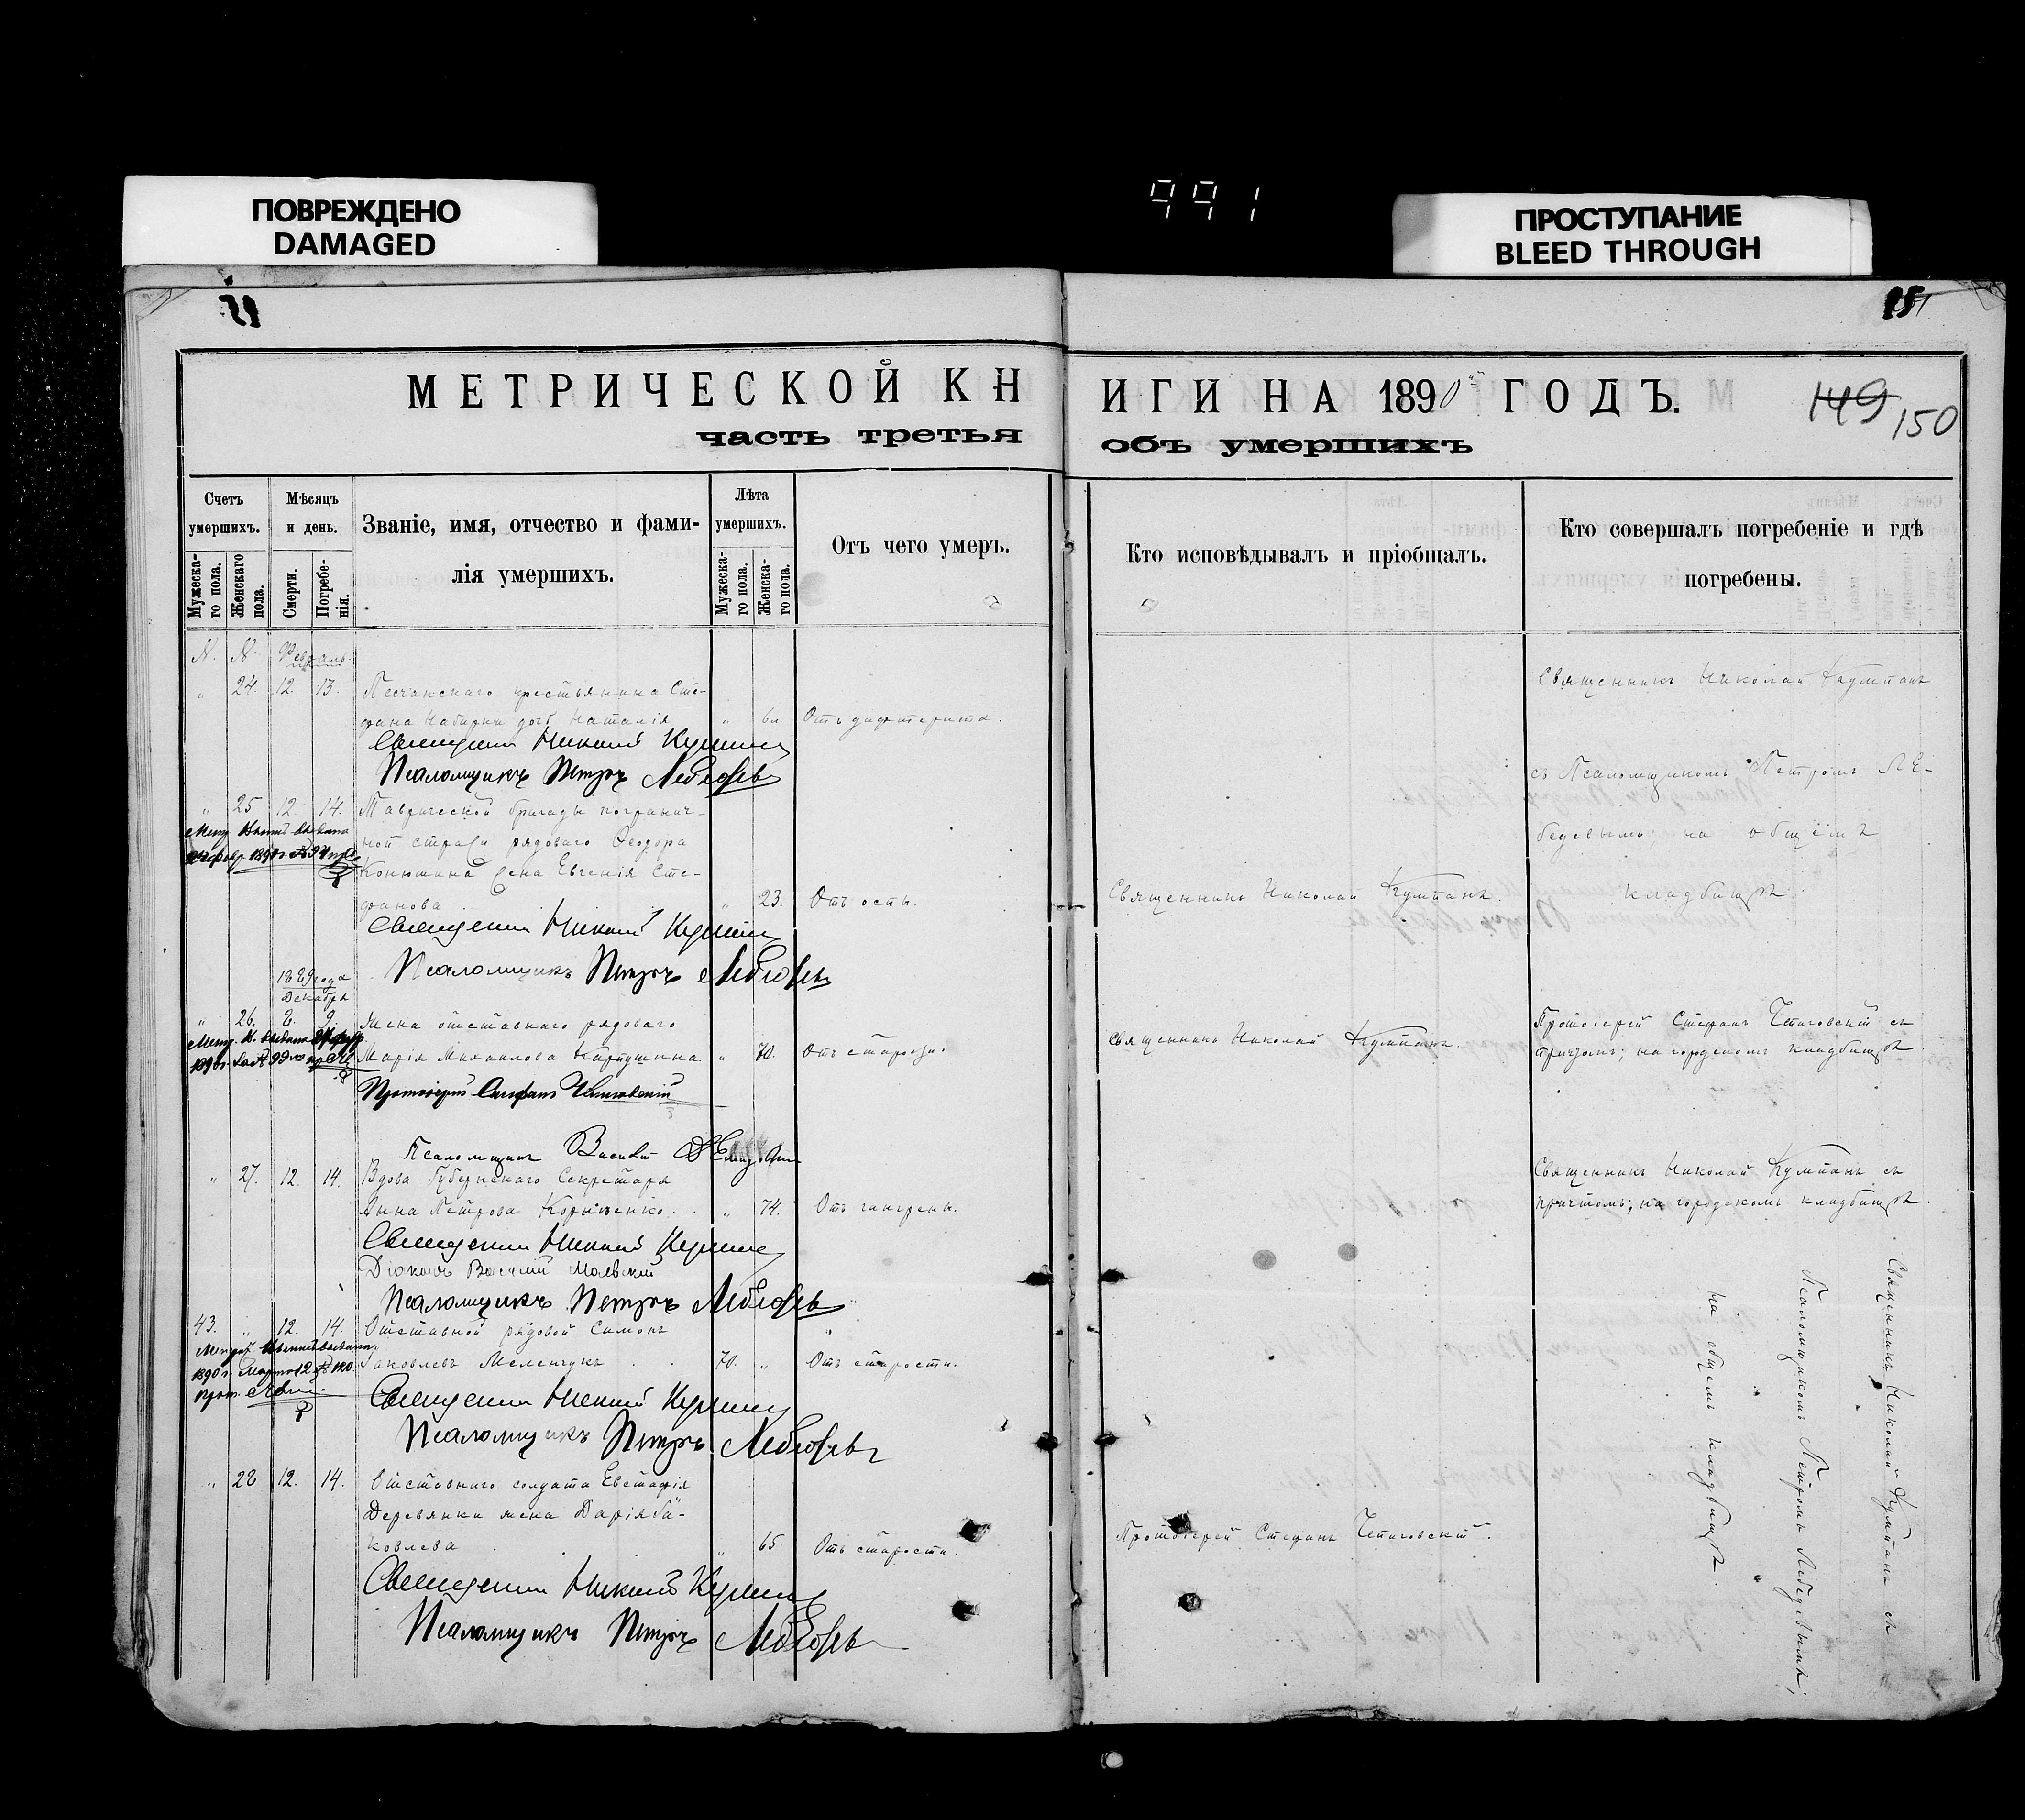 ПОВРЕЖДЕНО
DAMAGED
991
ПРОСТУПАНИЕ
BLEED THROUGH
151
МЕТРИЧЕСКОЙ КНИГИ НА 1890й ГОДЪ.
149 150
часть третья объ умершихъ
Счетъ умершихъ.
Мужескаго пола.
Женскаго пола.
Мѣсяцъ и день.
Смерти.
Погребенія.
Званіе, имя, отчество и фамилія умершихъ.
Лѣта умершихъ.
Мужескаго пола.
Женскаго пола.
Отъ чего умеръ.
Кто исповѣдывалъ и пріобщалъ.
Кто совершалъ погребеніе и гдѣ погребены.
N. N. Февраль
„ 24. 12. 13. Песчанскаго крестьянина Сте-
фана дочь Наталія „ Отъ дифтерита.
Священникъ Николай Кумпанъ
Псаломщикъ Петръ Лебедевъ
Священникъ Николай Кумпанъ
съ Псаломщикомъ Петромъ Ле-
бедевымъ; на общемъ
кладбищѣ.
„ 25 12. 14. Таврической бригады погранич-
ной стражи рядового Ѳеодора
Конюшина жена Евгенія Сте-
фанова „ 23. Отъ оспы. Священникъ Николай Кумпанъ.
Священникъ Николай Кумпанъ
Псаломщикъ Петръ Лебедевъ
1889 года
Декабря
„ 26. 8. 9. Жена отставнаго рядоваго
Марія Михаилова „ 70. Отъ старости. Священникъ Николай Кумпанъ.
Протоіерей Стефанъ
Протоіерей Стефанъ съ
причтомъ; на городскомъ кладбищѣ
Псаломщикъ Василій
„ 27. 12. 14. Вдова Губернскаго Секретаря
Анна Петрова Корніенко „ 74. Отъ гангрены.
Священникъ Николай Кумпанъ съ
причтомъ; на городскомъ кладбищѣ.
Священникъ Николай Кумпанъ
Діаконъ Василій
Псаломщикъ Петръ Лебедевъ
43. „ 12. 14. Отставной рядовой Симонъ
Яковлевъ Меленчукъ 70. „ Отъ старости.
Священникъ Николай Кумпанъ
Псаломщикъ Петръ Лебедевъ
„ 28 12. 14. Отставнаго солдата Евстафія
Деревянки жена Дарія Яа-
ковлева „ 65 Отъ старости. Протоіерей Стефанъ
Священникъ Николай Кумпанъ
Псаломщикъ Петръ Лебедевъ
Священникъ Николай Кумпанъ съ
Псаломщикомъ Петромъ Лебедевымъ;
на общемъ кладбищѣ.